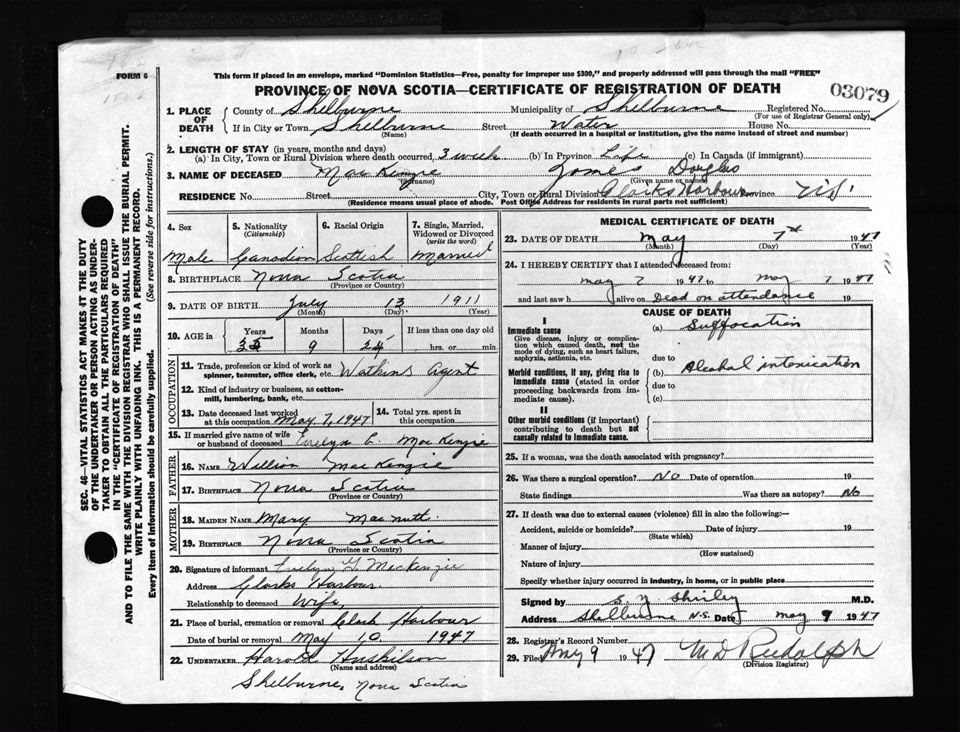 FORM 6
This form if placed in an envelope, marked "Dominion Statistics—Free, penalty for improper use $300," and properly addressed will pass through the mail "FREE"
PROVINCE OF NOVA SCOTIA—CERTIFICATE OF REGISTRATION OF DEATH
03079
1. PLACE OF DEATH
County of Shelburne Municipality of Shelburne Registered No.
(For use of Registrar General only)
If in City or Town Shelburne Street Water House No.
(Name) (If death occurred in a hospital or institution, give the name instead of street and number)
2. LENGTH OF STAY (in years, months and days)
(a) In City, Town or Rural Division where death occurred, 3 week (b) In Province Life (c) In Canada (if immigrant)
3. NAME OF DECEASED MacKenzie Douglas
(Surname) (Given name or names)
RESIDENCE No. Street City, Town or Rural Division Clarks Harbour Province
(Residence means usual place of abode. Post Office Address for residents in rural parts not sufficient)
4. Sex
Male
5. Nationality
(Citizenship)
Canadian
6. Racial Origin
Scottish
7. Single, Married, Widowed or Divorced
(write the word)
Married
8. BIRTHPLACE Nova Scotia
(Province or Country)
9. DATE OF BIRTH July 13 1911
(Month) (Day) (Year)
10. AGE in Years Months Days If less than one day old
35 9 24 hrs. or min.
OCCUPATION
11. Trade, profession or kind of work as spinner, teamster, office clerk, etc. Watkins Agent
12. Kind of industry or business, as cotton-mill, lumbering, bank, etc.
13. Date deceased last worked at this occupation May 7, 1947
14. Total yrs. spent in this occupation
15. If married give name of wife or husband of deceased Evelyn G. MacKenzie
FATHER
16. NAME William MacKenzie
17. BIRTHPLACE Nova Scotia
(Province or Country)
MOTHER
18. MAIDEN NAME Mary MacNutt
19. BIRTHPLACE Nova Scotia
(Province or Country)
20. Signature of informant Evelyn G. MacKenzie
Address Clarks Harbour.
Relationship to deceased Wife.
21. Place of burial, cremation or removal Clark Harbour
Date of burial or removal May 10 1947
22. UNDERTAKER Harold Huskilson
(Name and address)
Shelburne, Nova Scotia
MEDICAL CERTIFICATE OF DEATH
23. DATE OF DEATH May 7th 1947
(Month) (Day) (Year)
24. I HEREBY CERTIFY that I attended deceased from:
May 7 1947 to May 7 1947
and last saw h alive on Dead on attendance 19
CAUSE OF DEATH
I
Immediate cause
Give disease, injury or complication which caused death, not the mode of dying, such as heart failure, asphyxia, asthenia, etc.
(a) Suffocation
due to
Morbid conditions, if any, giving rise to immediate cause (stated in order proceeding backwards from immediate cause).
(b) Alcohol intoxication
due to
(c)
II
Other morbid conditions (if important) contributing to death but not causally related to immediate cause.
25. If a woman, was the death associated with pregnancy?
26. Was there a surgical operation? No Date of operation 19
State findings Was there an autopsy? No
27. If death was due to external causes (violence) fill in also the following:—
Accident, suicide or homicide? Date of injury 19
(State which)
Manner of injury
(How sustained)
Nature of injury
Specify whether injury occurred in industry, in home, or in public place
Signed by Shirley M.D.
Address Shelburne N.S. Date May 9 1947
28. Registrar's Record Number
29. Filed May 9 1947 M D Rudolph
(Division Registrar)
SEC. 46—VITAL STATISTICS ACT MAKES IT THE DUTY
OF THE UNDERTAKER OR PERSON ACTING AS UNDER-
TAKER TO OBTAIN ALL THE PARTICULARS REQUIRED
IN THE "CERTIFICATE OF REGISTRATION OF DEATH"
AND TO FILE THE SAME WITH THE DIVISION REGISTRAR WHO SHALL ISSUE THE BURIAL PERMIT.
WRITE PLAINLY WITH UNFADING INK. THIS IS A PERMANENT RECORD.
Every item of Information should be carefully supplied. (See reverse side for instructions.)